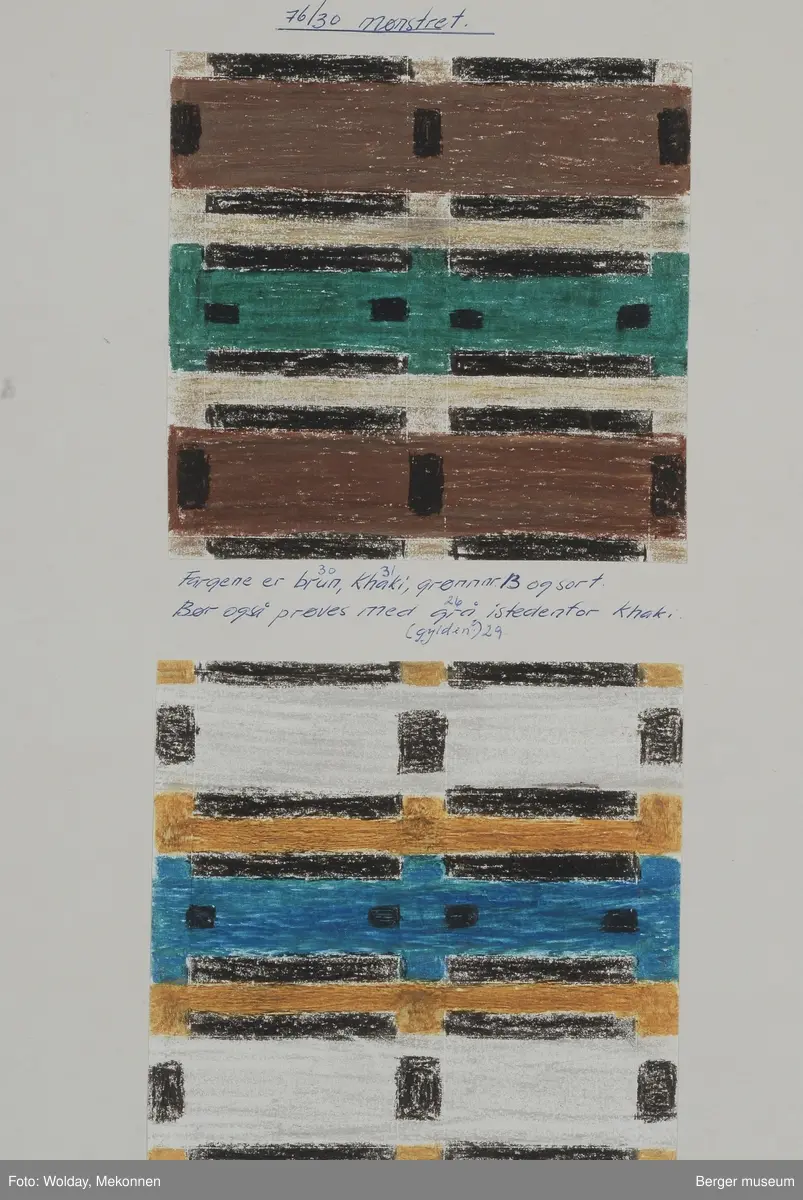 76/30 mønstret.
30 31
Fargene er brun, khaki, grønn nr B og sort.
26
Bør også prøves med grå istedenfor khaki.
(gylden?) 29
Foto: Wolday, Mekonnen
Berger museum